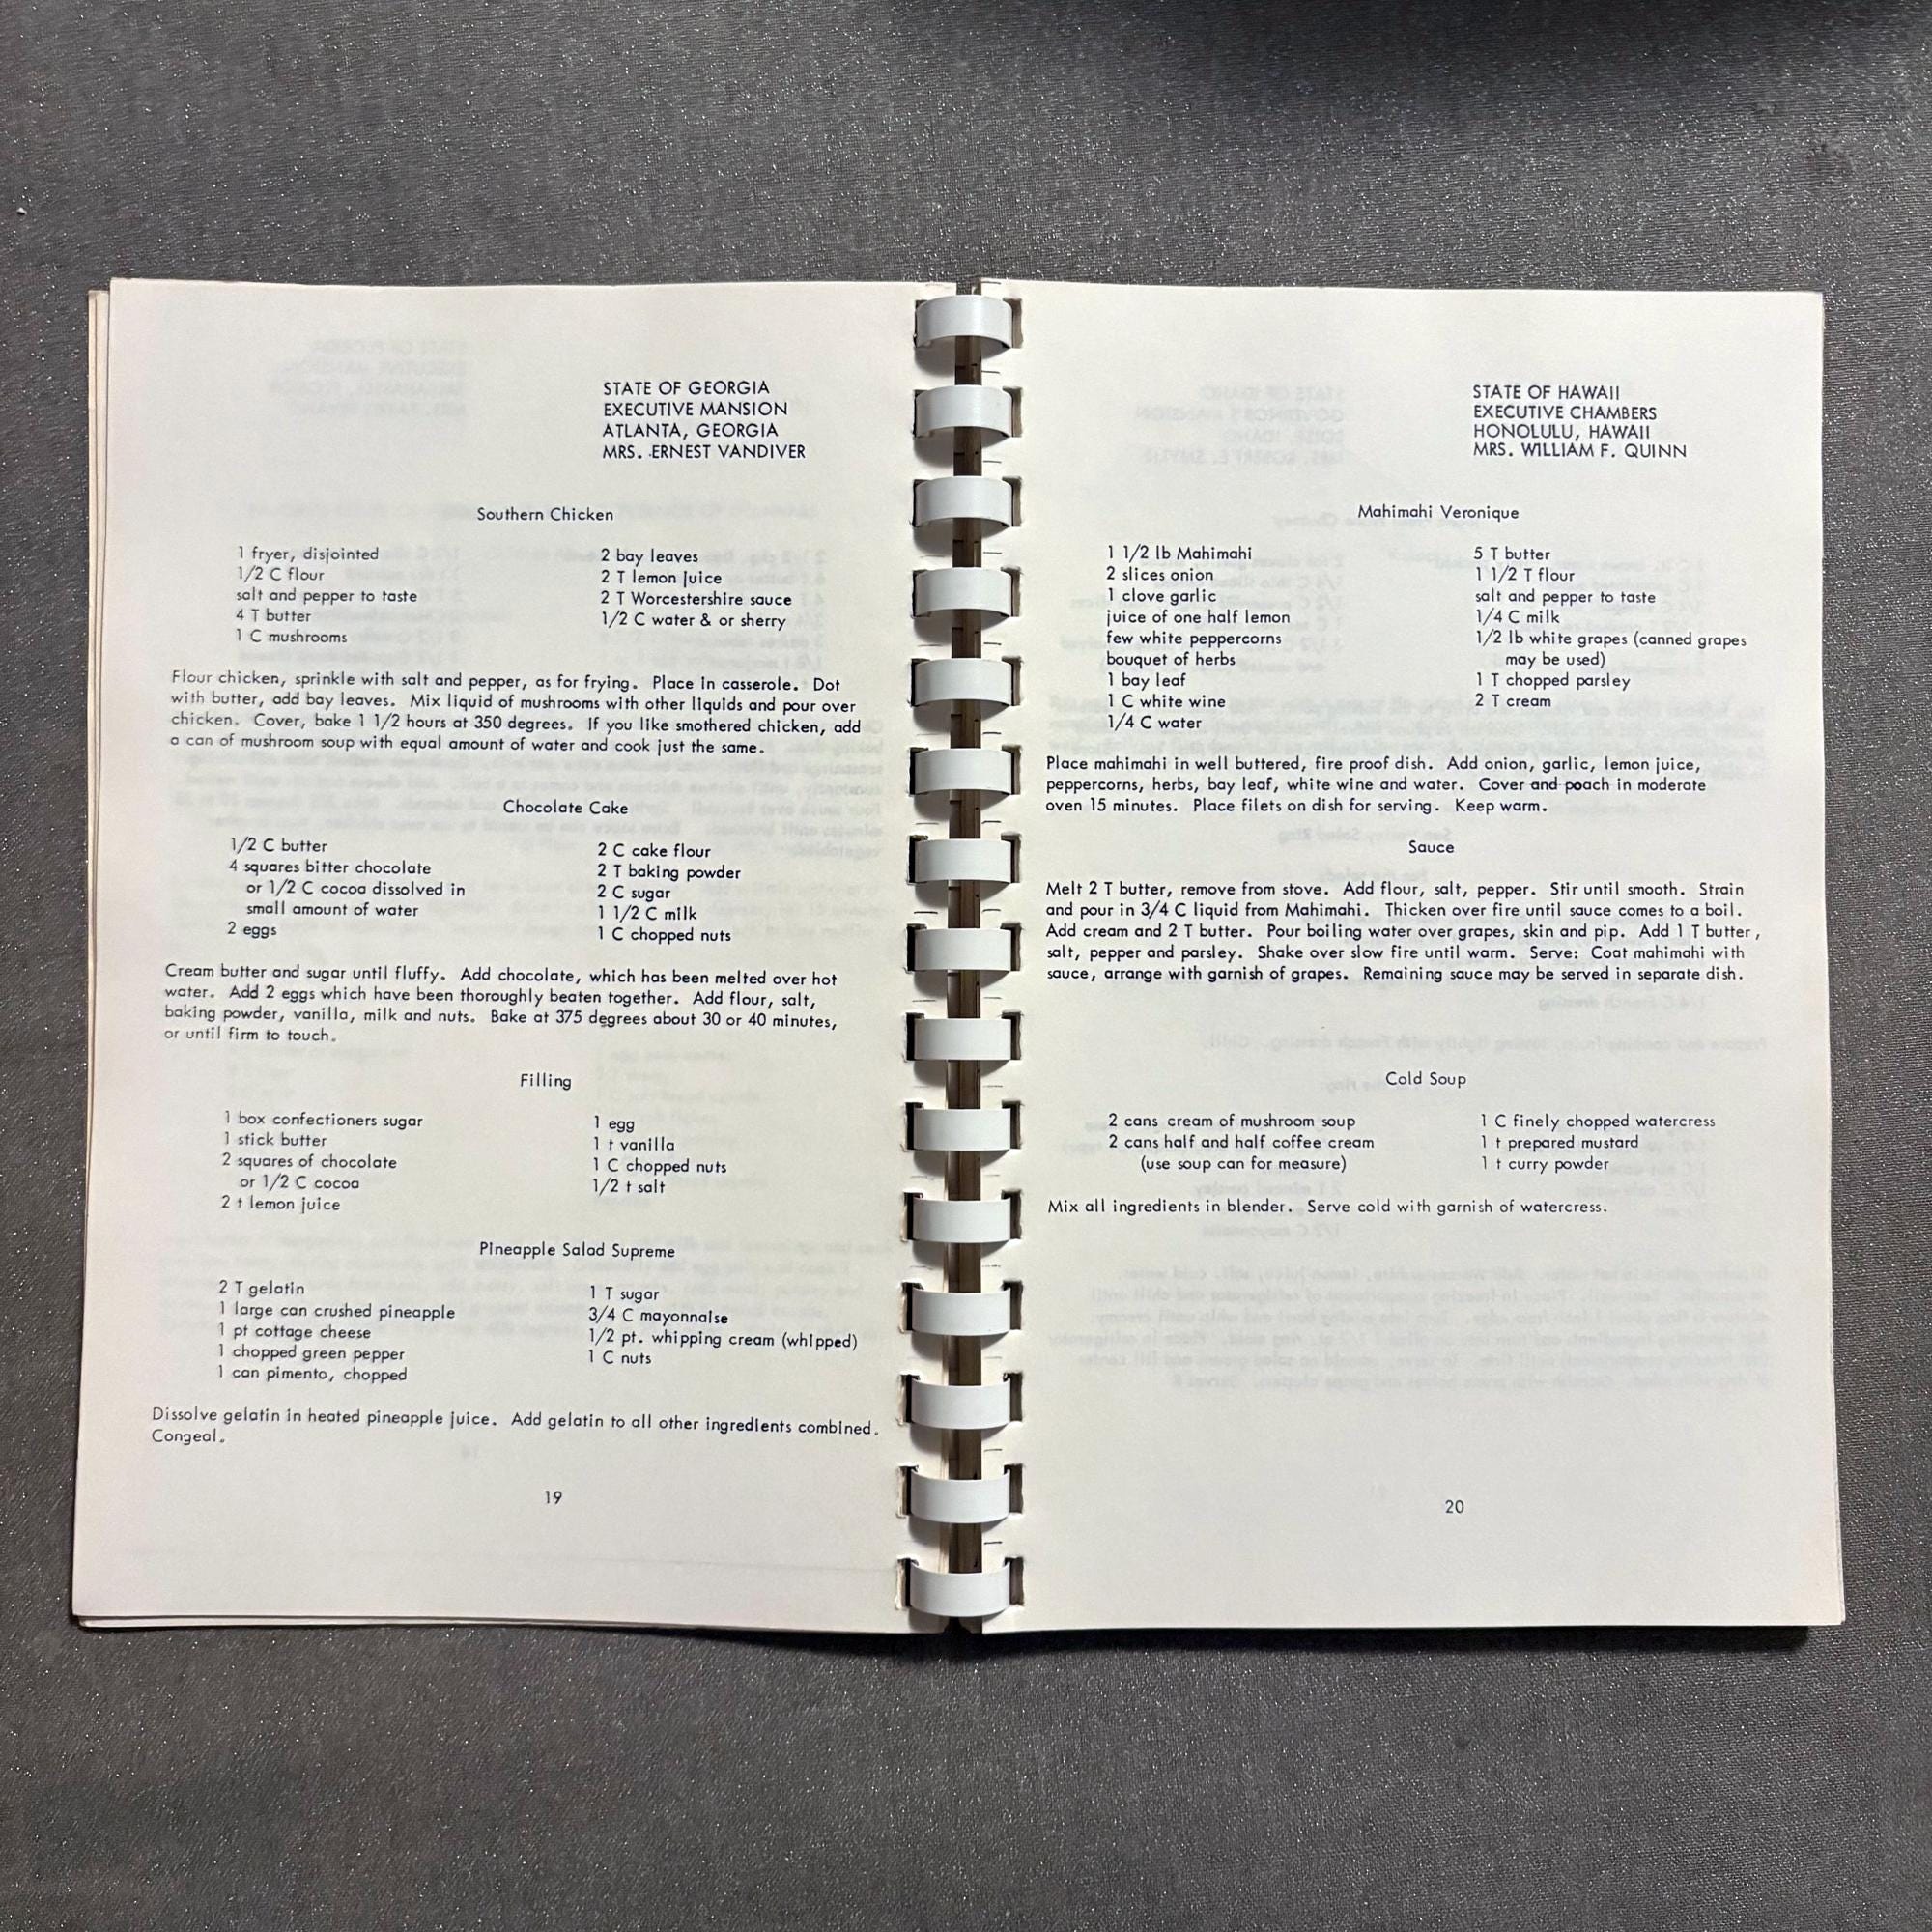 STATE OF GEORGIA
EXECUTIVE MANSION
ATLANTA, GEORGIA
MRS. ERNEST VANDIVER
Southern Chicken
1 fryer, disjointed
1/2 C flour
salt and pepper to taste
4 T butter
1 C mushrooms
2 bay leaves
2 T lemon juice
2 T Worcestershire sauce
1/2 C water & or sherry
Flour chicken, sprinkle with salt and pepper, as for frying. Place in casserole. Dot
with butter, add bay leaves. Mix liquid of mushrooms with other liquids and pour over
chicken. Cover, bake 1 1/2 hours at 350 degrees. If you like smothered chicken, add
a can of mushroom soup with equal amount of water and cook just the same.
Chocolate Cake
1/2 C butter
4 squares bitter chocolate
or 1/2 C cocoa dissolved in
small amount of water
2 eggs
2 C cake flour
2 T baking powder
2 C sugar
1 1/2 C milk
1 C chopped nuts
Cream butter and sugar until fluffy. Add chocolate, which has been melted over hot
water. Add 2 eggs which have been thoroughly beaten together. Add flour, salt,
baking powder, vanilla, milk and nuts. Bake at 375 degrees about 30 or 40 minutes,
or until firm to touch.
Filling
1 box confectioners sugar
1 stick butter
2 squares of chocolate
or 1/2 C cocoa
2 t lemon juice
1 egg
1 t vanilla
1 C chopped nuts
1/2 t salt
Pineapple Salad Supreme
2 T gelatin
1 large can crushed pineapple
1 pt cottage cheese
1 chopped green pepper
1 can pimento, chopped
1 T sugar
3/4 C mayonnaise
1/2 pt. whipping cream (whipped)
1 C nuts
Dissolve gelatin in heated pineapple juice. Add gelatin to all other ingredients combined.
Congeal.
19
STATE OF HAWAII
EXECUTIVE CHAMBERS
HONOLULU, HAWAII
MRS. WILLIAM F. QUINN
Mahimahi Veronique
1 1/2 lb Mahimahi
2 slices onion
1 clove garlic
juice of one half lemon
few white peppercorns
bouquet of herbs
1 bay leaf
1 C white wine
1/4 C water
5 T butter
1 1/2 T flour
salt and pepper to taste
1/4 C milk
1/2 lb white grapes (canned grapes
may be used)
1 T chopped parsley
2 T cream
Place mahimahi in well buttered, fire proof dish. Add onion, garlic, lemon juice,
peppercorns, herbs, bay leaf, white wine and water. Cover and poach in moderate
oven 15 minutes. Place filets on dish for serving. Keep warm.
Sauce
Melt 2 T butter, remove from stove. Add flour, salt, pepper. Stir until smooth. Strain
and pour in 3/4 C liquid from Mahimahi. Thicken over fire until sauce comes to a boil.
Add cream and 2 T butter. Pour boiling water over grapes, skin and pip. Add 1 T butter,
salt, pepper and parsley. Shake over slow fire until warm. Serve: Coat mahimahi with
sauce, arrange with garnish of grapes. Remaining sauce may be served in separate dish.
Cold Soup
2 cans cream of mushroom soup
2 cans half and half coffee cream
(use soup can for measure)
1 C finely chopped watercress
1 t prepared mustard
1 t curry powder
Mix all ingredients in blender. Serve cold with garnish of watercress.
20